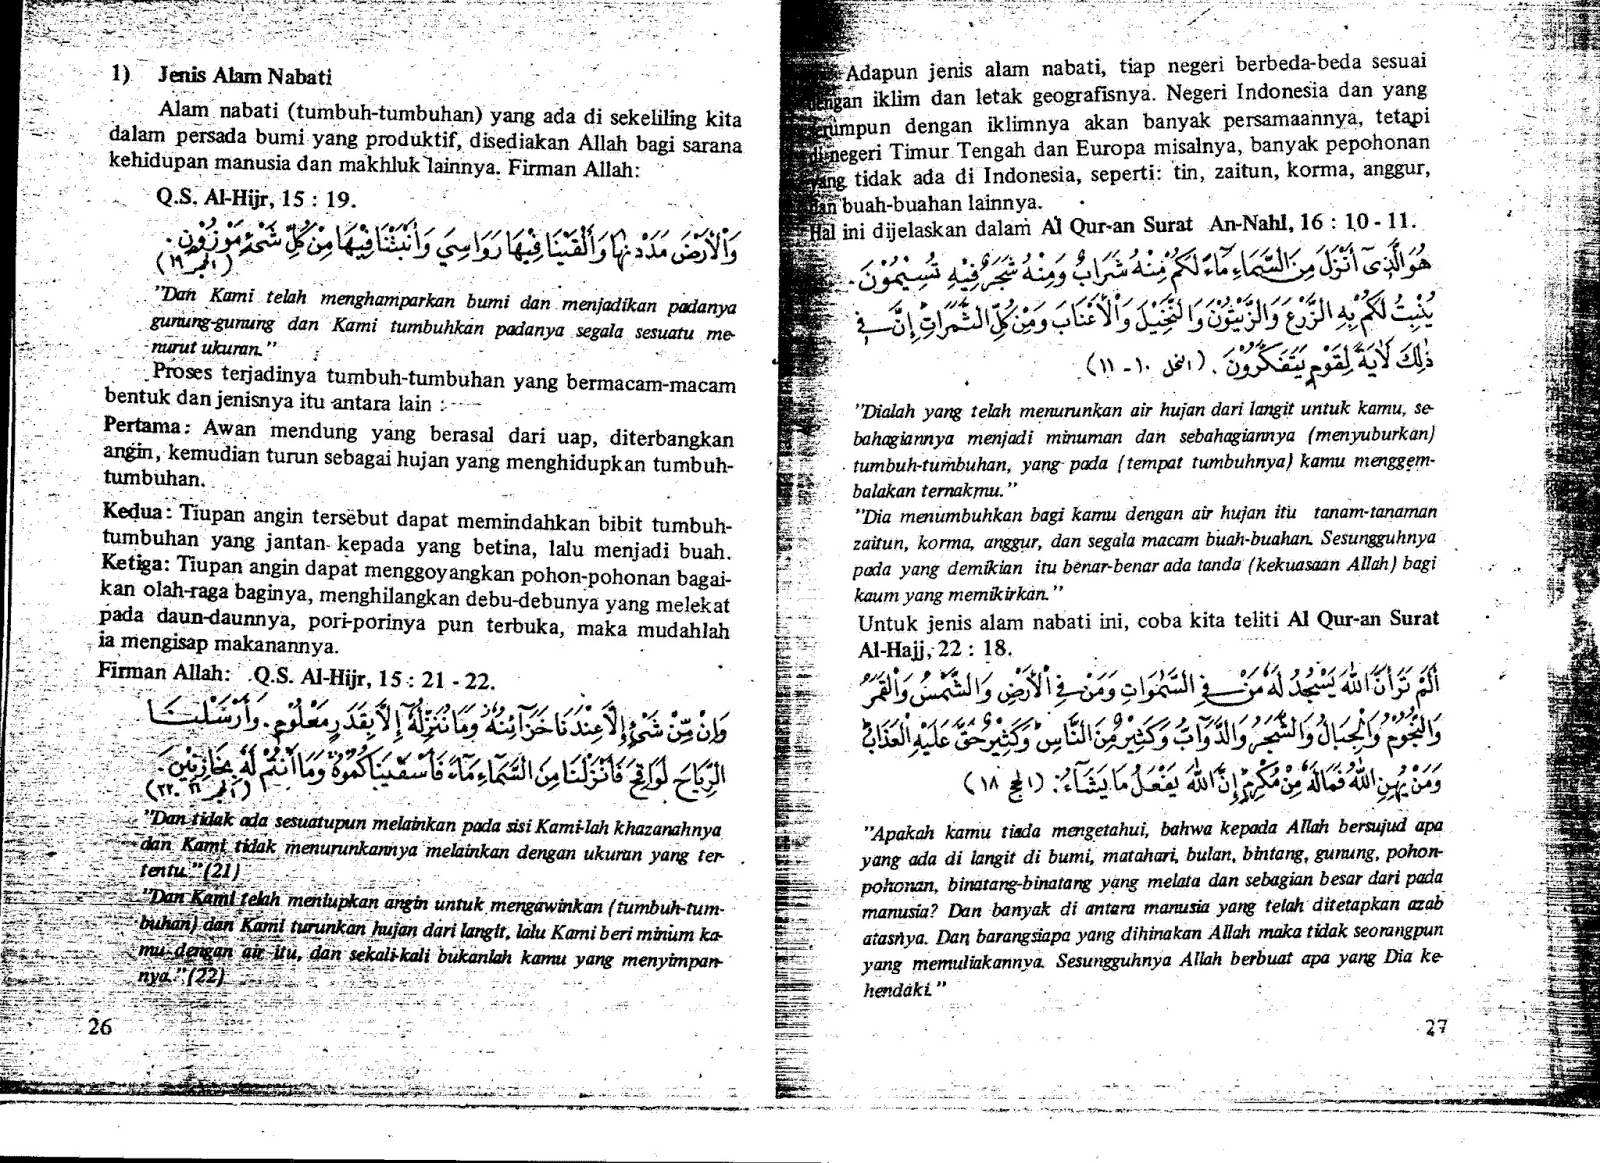 1) Jenis Alam Nabati
Alam nabati (tumbuh-tumbuhan) yang ada di sekeliling kita
dalam persada bumi yang produktif, disediakan Allah bagi sarana
kehidupan manusia dan makhluk lainnya. Firman Allah:
Q.S. Al-Hijr, 15 : 19.
وَالْأَرْضَ مَدَدْنٰهَا وَأَلْقَيْنَا فِيْهَا رَوَاسِيَ وَأَنْبَتْنَا فِيْهَا مِنْ كُلِّ شَيْءٍ مَوْزُوْنٍ.
(الحجر ١٩)
"Dan Kami telah menghamparkan bumi dan menjadikan padanya
gunung-gunung dan Kami tumbuhkan padanya segala sesuatu me-
nurut ukuran."
Proses terjadinya tumbuh-tumbuhan yang bermacam-macam
bentuk dan jenisnya itu antara lain :
Pertama: Awan mendung yang berasal dari uap, diterbangkan
angin, kemudian turun sebagai hujan yang menghidupkan tumbuh-
tumbuhan.
Kedua: Tiupan angin tersebut dapat memindahkan bibit tumbuh-
tumbuhan yang jantan kepada yang betina, lalu menjadi buah.
Ketiga: Tiupan angin dapat menggoyangkan pohon-pohonan bagai-
kan olah-raga baginya, menghilangkan debu-debunya yang melekat
pada daun-daunnya, pori-porinya pun terbuka, maka mudahlah
ia mengisap makanannya.
Firman Allah: Q.S. Al-Hijr, 15 : 21 - 22.
وَإِنْ مِّنْ شَيْءٍ إِلَّا عِنْدَنَا خَزَآئِنُهُ وَمَا نُنَزِّلُهُ إِلَّا بِقَدَرٍ مَعْلُوْمٍ. وَأَرْسَلْنَا
الرِّيَاحَ لَوَاقِحَ فَأَنْزَلْنَا مِنَ السَّمَاءِ مَآءً فَأَسْقَيْنَاكُمُوْهُ وَمَا أَنْتُمْ لَهُ بِخَازِنِيْنَ.
(الحجر ٢١-٢٢)
"Dan tidak ada sesuatupun melainkan pada sisi Kami-lah khazanahnya
dan Kami tidak menurunkannya melainkan dengan ukuran yang ter-
tentu."(21)
"Dan Kami telah meniupkan angin untuk mengawinkan (tumbuh-tum-
buhan) dan Kami turunkan hujan dari langit, lalu Kami beri minum ka-
mu dengan air itu, dan sekali-kali bukanlah kamu yang menyimpan-
nya."(22)
26
Adapun jenis alam nabati, tiap negeri berbeda-beda sesuai
dengan iklim dan letak geografisnya. Negeri Indonesia dan yang
serumpun dengan iklimnya akan banyak persamaannya, tetapi
di negeri Timur Tengah dan Europa misalnya, banyak pepohonan
yang tidak ada di Indonesia, seperti: tin, zaitun, korma, anggur,
dan buah-buahan lainnya.
Hal ini dijelaskan dalam Al Qur-an Surat An-Nahl, 16 : 10 - 11.
هُوَ الَّذِي أَنْزَلَ مِنَ السَّمَاءِ مَآءً لَكُمْ مِنْهُ شَرَابٌ وَمِنْهُ شَجَرٌ فِيْهِ تُسِيْمُوْنَ.
يُنْبِتُ لَكُمْ بِهِ الزَّرْعَ وَالزَّيْتُوْنَ وَالنَّخِيْلَ وَالْأَعْنَابَ وَمِنْ كُلِّ الثَّمَرَاتِ إِنَّ فِي
ذٰلِكَ لَاٰيَةً لِقَوْمٍ يَتَفَكَّرُوْنَ. (النحل ١٠ - ١١)
"Dialah yang telah menurunkan air hujan dari langit untuk kamu, se-
bahagiannya menjadi minuman dan sebahagiannya (menyuburkan)
tumbuh-tumbuhan, yang pada (tempat tumbuhnya) kamu menggem-
balakan ternakmu."
"Dia menumbuhkan bagi kamu dengan air hujan itu tanam-tanaman
zaitun, korma, anggur, dan segala macam buah-buahan. Sesungguhnya
pada yang demikian itu benar-benar ada tanda (kekuasaan Allah) bagi
kaum yang memikirkan."
Untuk jenis alam nabati ini, coba kita teliti Al Qur-an Surat
Al-Hajj, 22 : 18.
أَلَمْ تَرَ أَنَّ اللّٰهَ يَسْجُدُ لَهُ مَنْ فِي السَّمٰوَاتِ وَمَنْ فِي الْأَرْضِ وَالشَّمْسُ وَالْقَمَرُ
وَالنُّجُوْمُ وَالْجِبَالُ وَالشَّجَرُ وَالدَّوَآبُّ وَكَثِيْرٌ مِنَ النَّاسِ وَكَثِيْرٌ حَقَّ عَلَيْهِ الْعَذَابُ
وَمَنْ يُهِنِ اللّٰهُ فَمَا لَهُ مِنْ مُكْرِمٍ إِنَّ اللّٰهَ يَفْعَلُ مَا يَشَآءُ. (الحج ١٨)
"Apakah kamu tiada mengetahui, bahwa kepada Allah bersujud apa
yang ada di langit di bumi, matahari, bulan, bintang, gunung, pohon-
pohonan, binatang-binatang yang melata dan sebagian besar dari pada
manusia? Dan banyak di antara manusia yang telah ditetapkan azab
atasnya. Dan barangsiapa yang dihinakan Allah maka tidak seorangpun
yang memuliakannya. Sesungguhnya Allah berbuat apa yang Dia ke-
hendaki."
27